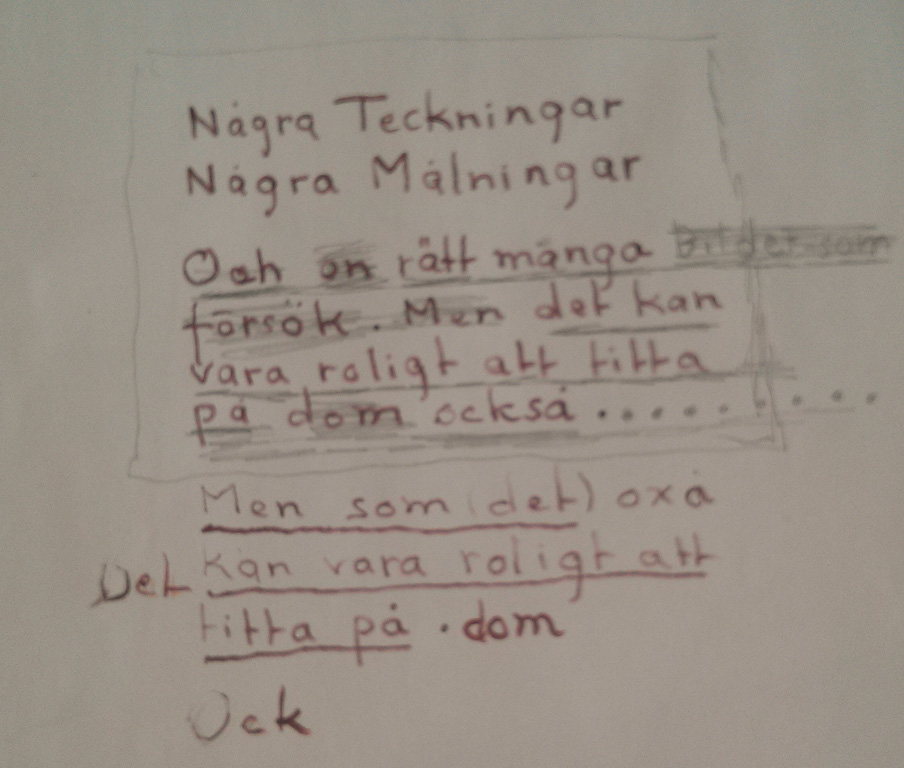 Några Teckningar
Några Målningar
Och en rätt många Bilder som
försök. Men det kan
vara roligt att titta
på dom också..........
Men som (det) oxå
Det kan vara roligt att
titta på . dom
Ock